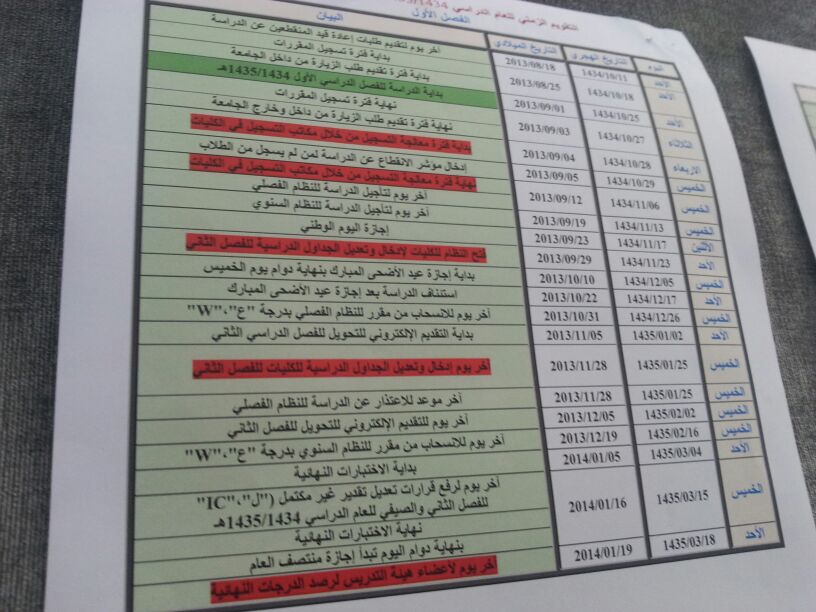 التقويم الزمني للعام الدراسي 1435/1434
الفصل الأول
اليوم التاريخ الهجري التاريخ الميلادي البيان
الأحد 1434/10/11 2013/08/18 آخر يوم لتقديم طلبات إعادة قيد المنقطعين عن الدراسة
بداية فترة تسجيل المقررات
بداية فترة تقديم طلب الزيارة من داخل الجامعة
الأحد 1434/10/18 2013/08/25 بداية الدراسة للفصل الدراسي الأول 1435/1434هـ
الأحد 1434/10/25 2013/09/01 نهاية فترة تسجيل المقررات
نهاية فترة تقديم طلب الزيارة من داخل وخارج الجامعة
الثلاثاء 1434/10/27 2013/09/03 بداية فترة معالجة التسجيل من خلال مكاتب التسجيل في الكليات
الاربعاء 1434/10/28 2013/09/04 إدخال مؤشر الانقطاع عن الدراسة لمن لم يسجل من الطلاب
الخميس 1434/10/29 2013/09/05 نهاية فترة معالجة التسجيل من خلال مكاتب التسجيل في الكليات
الخميس 1434/11/06 2013/09/12 آخر يوم لتأجيل الدراسة للنظام الفصلي
آخر يوم لتأجيل الدراسة للنظام السنوي
الخميس 1434/11/13 2013/09/19
الأثنين 1434/11/17 2013/09/23 إجازة اليوم الوطني
الأحد 1434/11/23 2013/09/29 فتح النظام للكليات لادخال وتعديل الجداول الدراسية للفصل الثاني
الخميس 1434/12/05 2013/10/10 بداية إجازة عيد الأضحى المبارك بنهاية دوام يوم الخميس
الأحد 1434/12/17 2013/10/22 استئناف الدراسة بعد إجازة عيد الأضحى المبارك
الخميس 1434/12/26 2013/10/31 آخر يوم للانسحاب من مقرر للنظام الفصلي بدرجة "ع"،"W"
الأحد 1435/01/02 2013/11/05 بداية التقديم الإلكتروني للتحويل للفصل الدراسي الثاني
الخميس 1435/01/25 2013/11/28 آخر يوم إدخال وتعديل الجداول الدراسية للكليات للفصل الثاني
الخميس 1435/01/25 2013/11/28 آخر موعد للاعتذار عن الدراسة للنظام الفصلي
الخميس 1435/02/02 2013/12/05 آخر يوم للتقديم الإلكتروني للتحويل للفصل الثاني
الخميس 1435/02/16 2013/12/19 آخر يوم للانسحاب من مقرر للنظام السنوي بدرجة "ع"،"W"
الأحد 1435/03/04 2014/01/05 بداية الاختبارات النهائية
الخميس 1435/03/15 2014/01/16 آخر يوم لرفع قرارات تعديل تقدير غير مكتمل ("ل"،"IC"
للفصل الثاني والصيفي للعام الدراسي 1435/1434هـ
نهاية الاختبارات النهائية
بنهاية دوام اليوم تبدأ إجازة منتصف العام
الأحد 1435/03/18 2014/01/19 آخر يوم لأعضاء هيئة التدريس لرصد الدرجات النهائية